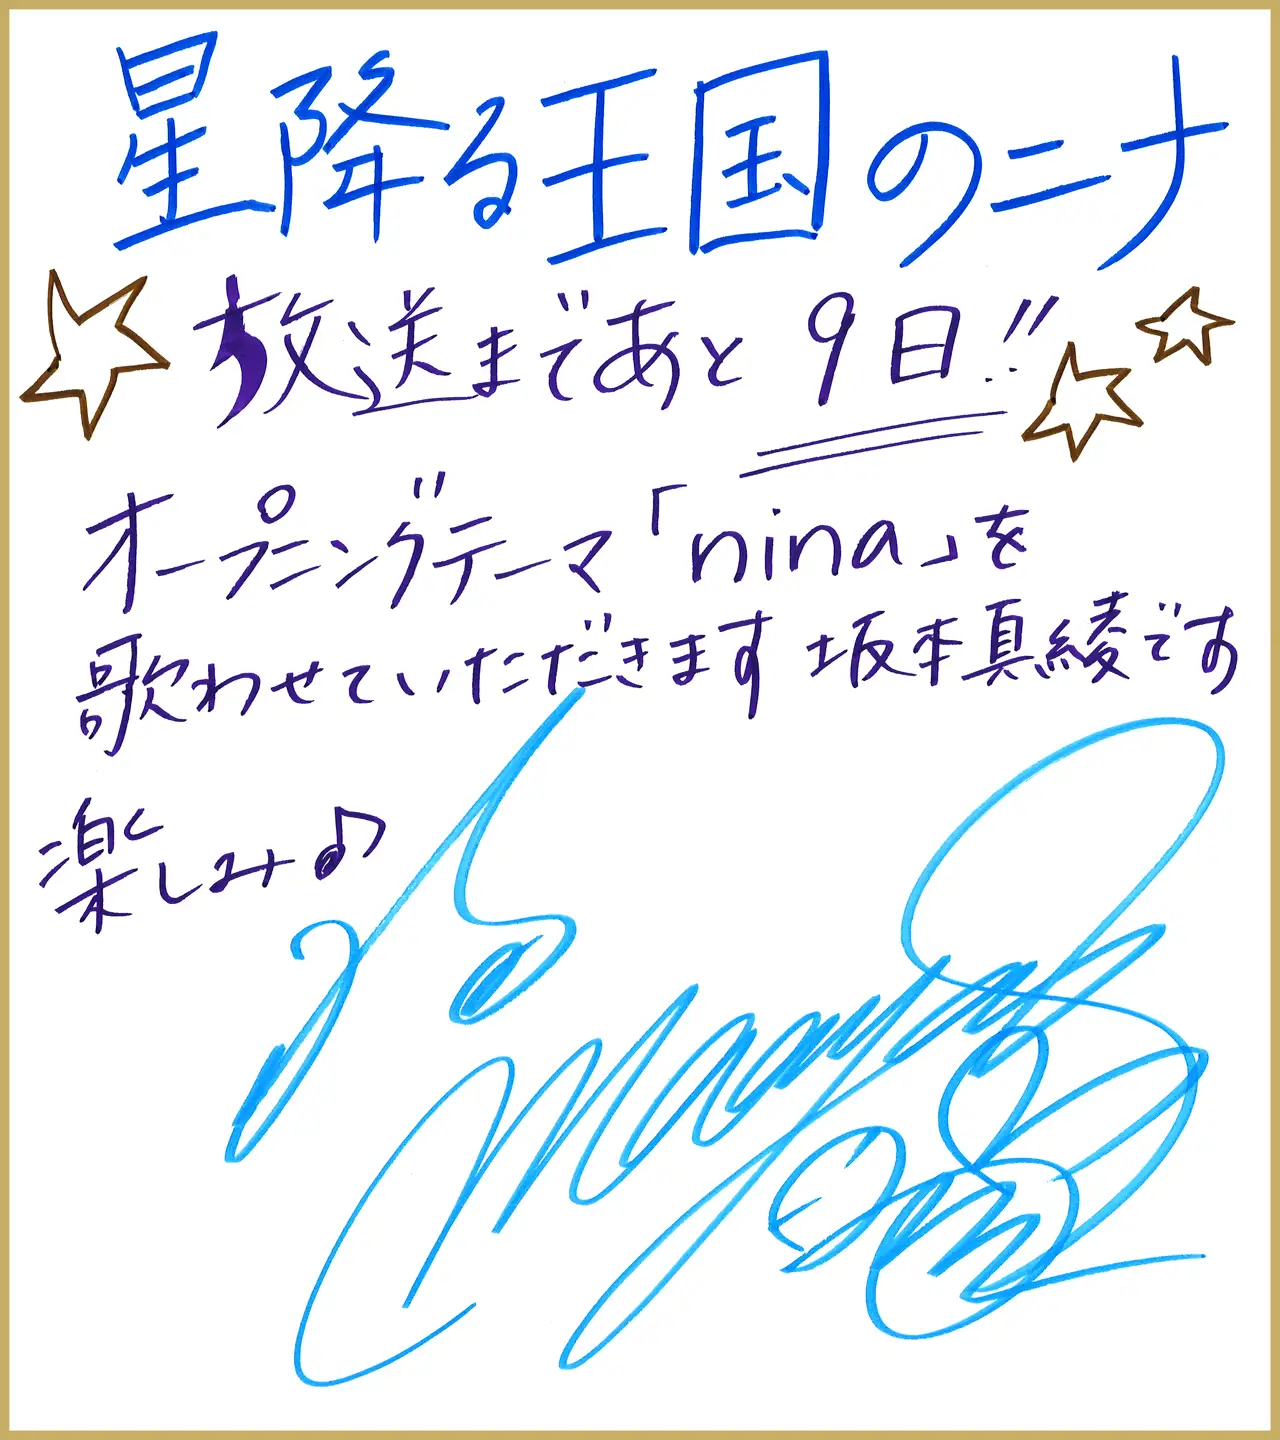 星降る王国のニナ
放送まであと9日!!
オープニングテーマ「nina」を
歌わせていただきます 坂本真綾です
楽しみ♪